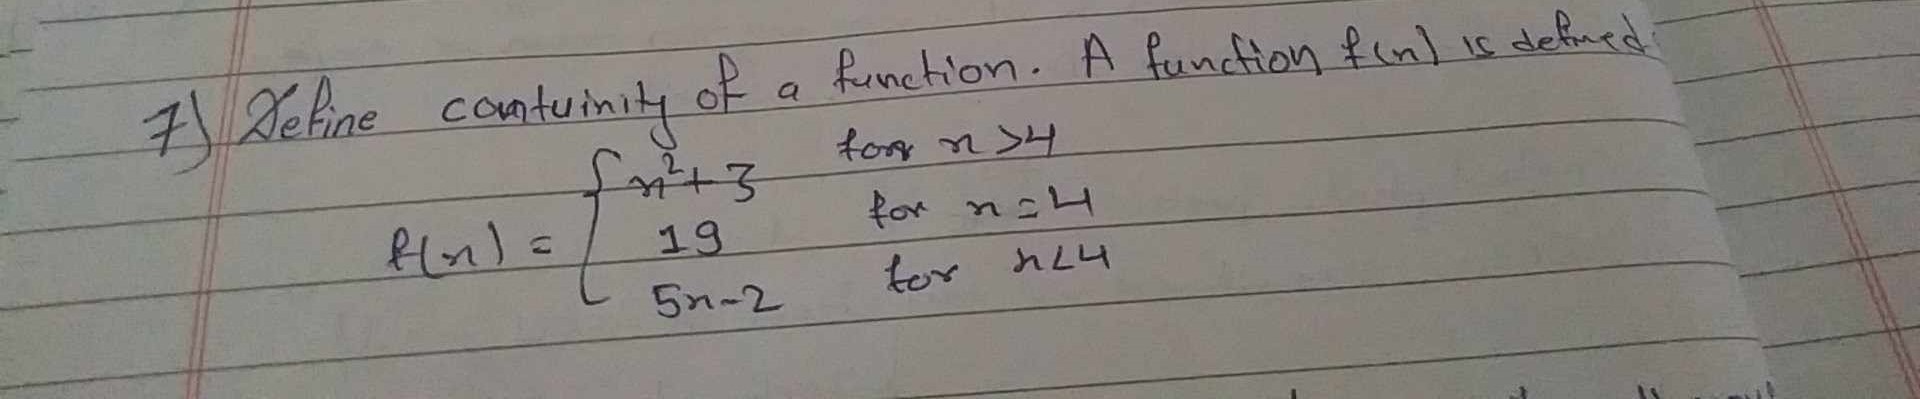 7) Define contuinity of a function. A function f(n) is defined
f(n) = { n²+3 for n>4
19 for n=4
5n-2 for n<4